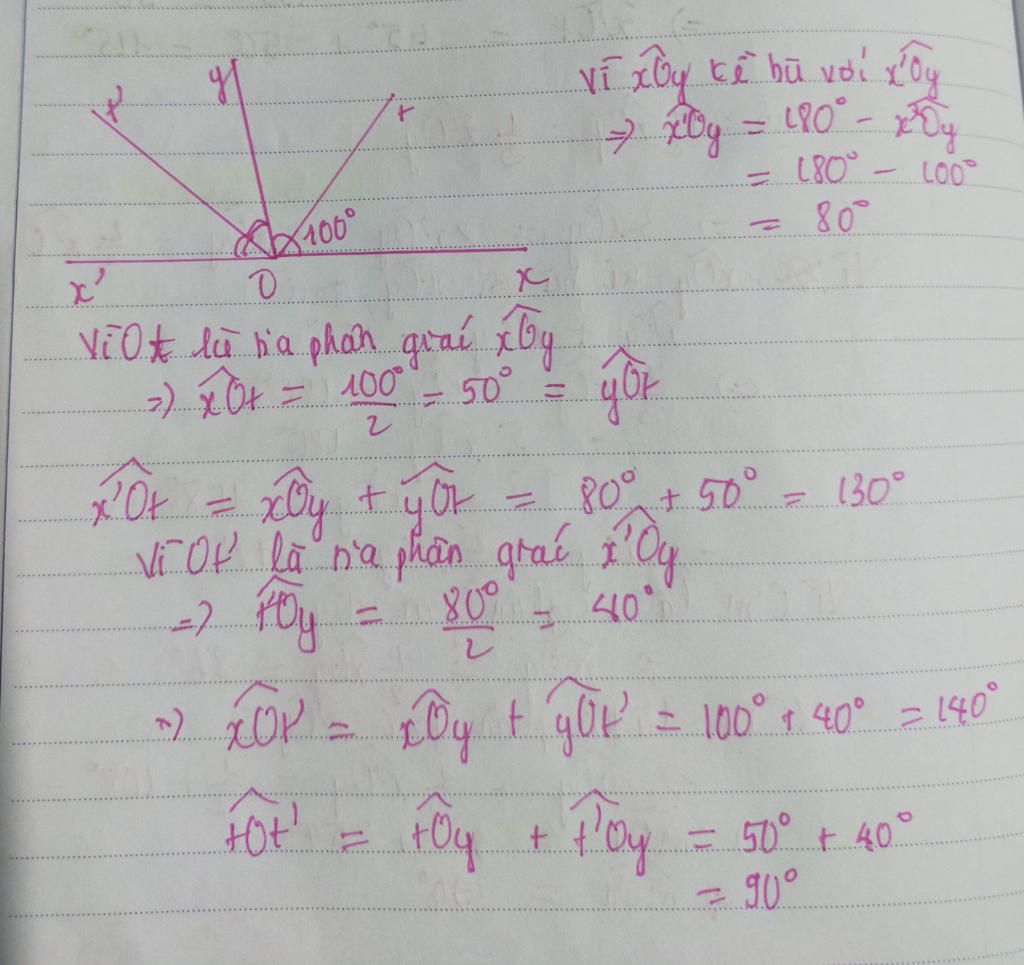 t' y t
100°
x' O x
Vì x̂Oy kề bù với x̂'Oy
=> x̂'Oy = 180° - x̂Oy
= 180° - 100°
= 80°
Vì Ot là tia phân giác x̂Oy
=> x̂Ot = 100°/2 = 50° = ŷOt
x̂'Ot = x̂Oy + ŷOt = 80° + 50° = 130°
Vì Ot' là tia phân giác x̂'Oy
=> t̂'Oy = 80°/2 = 40°
=> x̂Ot' = x̂Oy + ŷOt' = 100° + 40° = 140°
t̂Ot' = t̂Oy + t̂'Oy = 50° + 40°
= 90°